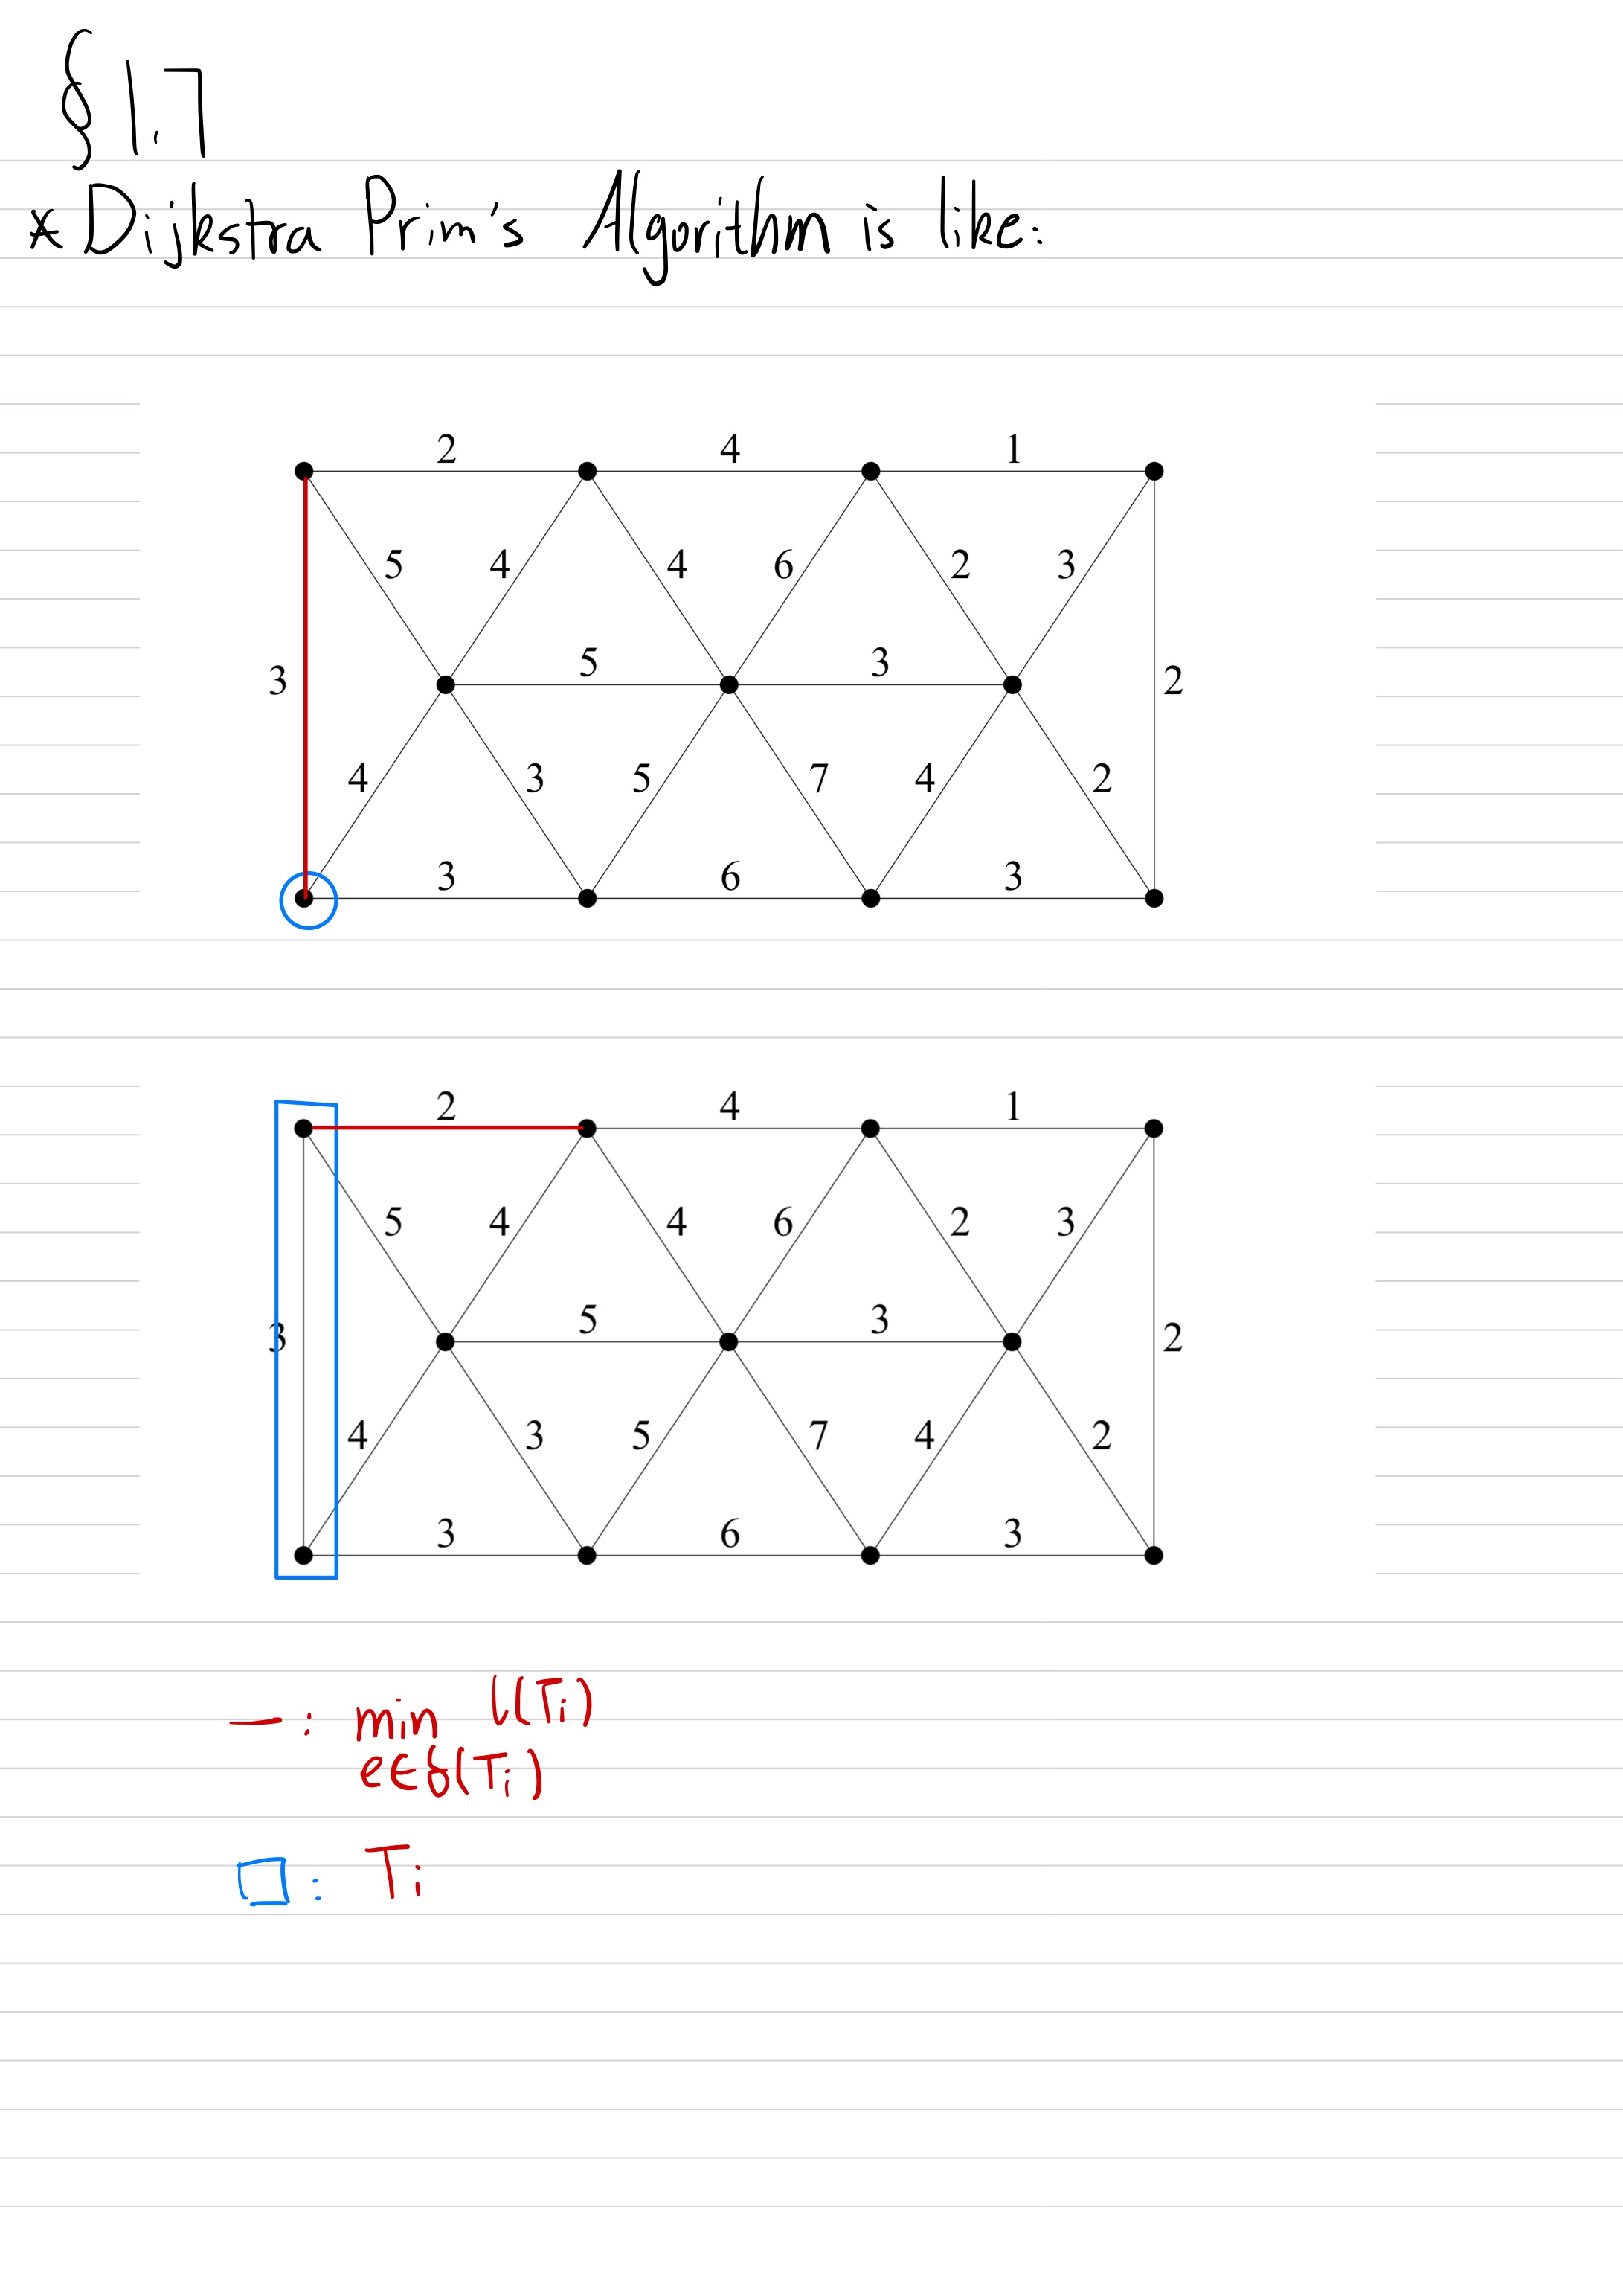 § 1.7
* Dijkstra Prim's Algorithm is like:
2 4 1
5 4 4 6 2 3
3 5 3 2
4 3 5 7 4 2
3 6 3
2 4 1
5 4 4 6 2 3
3 5 3 2
4 3 5 7 4 2
3 6 3
—: min l(Ti)
e∈δ(Ti)
□: Ti